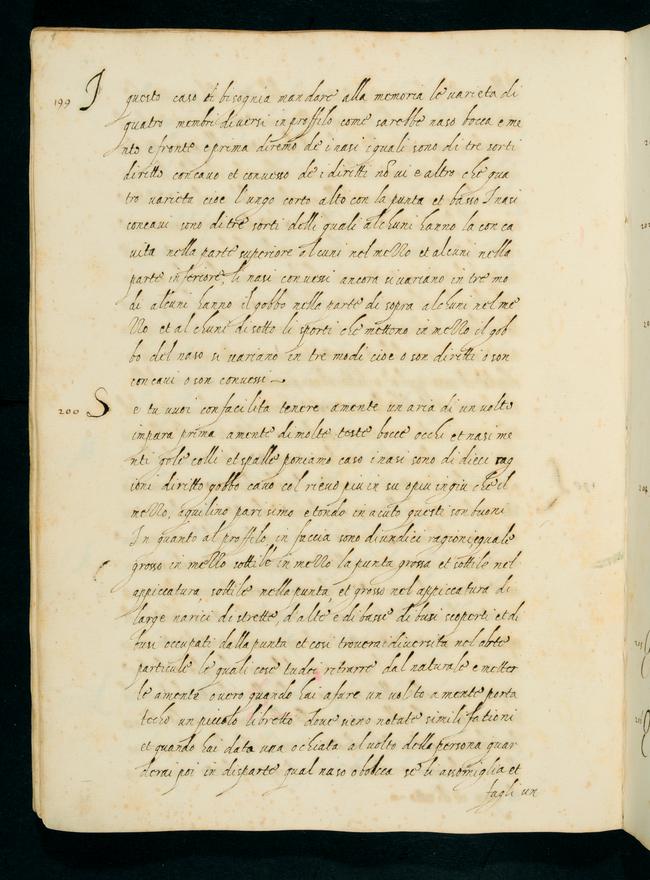 199 I questo caso ti bisognia mandare alla memoria le varieta di
quatro membri diversi in proffilo come sarebbe naso bocca e me
nto e fronte e prima diremo de i nasi i quali sono di tre sorti
diritto concavo et convesso de i diritti nō vi e altro che qua
tro varieta cioe lungo corto alto con la punta et basso I nasi
concavi sono di tre sorti delli quali alchuni hanno la conca
vita nella parte superiore alcuni nel mezzo et alcuni nella
parte inferiore, li nasi convessi ancora si variano in tre mo
di alcuni hanno il gobbo nella parte di sopra alchuni nel me
zzo et alchuni di sotto li sporti che mettono in mezzo il gob
bo del naso si variano in tre modi cioe o son diritti o son
concavi o son convessi
200 Se tu vuoi con facilita tenere a mente un aria di un volto
impara prima a mente di molte teste bocce occhi et nasi me
nti gole colli et spalle poniamo caso i nasi sono di dieci rag
ioni diritto gobbo cavo col rilievo piu in su o piu in giu che il
mezzo, aquilino pari simo e tondo in acuto questi son buoni
In quanto al proffilo in faccia sono di undici ragioni equale
grosso in mezzo sottile in mezzo la punta grossa et sottile nel
appiccatura, sottile nella punta, et grosso nel appiccatura di
large narici di strette, d'alte e di basse di busi scoperti et di
busi occupati dalla punta et cosi troverai diversita nel altre
particule le quali cose tu dei ritrarre dal naturale e metter
le a mente overo quando hai a fare un volto a mente porta
teco un piccolo libretto dove sieno notate simili fationi
et quando hai data una ochiata al volto della persona guar
derai poi in disparte qual naso o bocca se li assomiglia et
fagli un